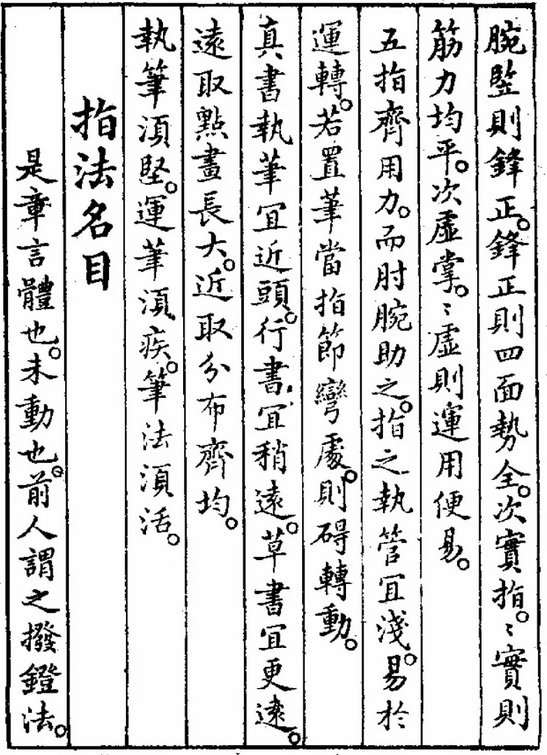 腕竪則鋒正。鋒正則四面勢全。次實指。〻實則
筋力均平。次虛掌。〻虛則運用便易。
五指齊用力。而肘腕助之。指之執管冝淺。易於
運轉。若置筆當指節彎處。則碍轉動。
真書執筆冝近頭。行書冝稍遠。草書冝更遠。
遠取點畫長大。近取分布齊均。
執筆湏堅。運筆湏疾。筆法湏活。
指法名目
是章言體也。未動也。前人謂之撥鐙法。